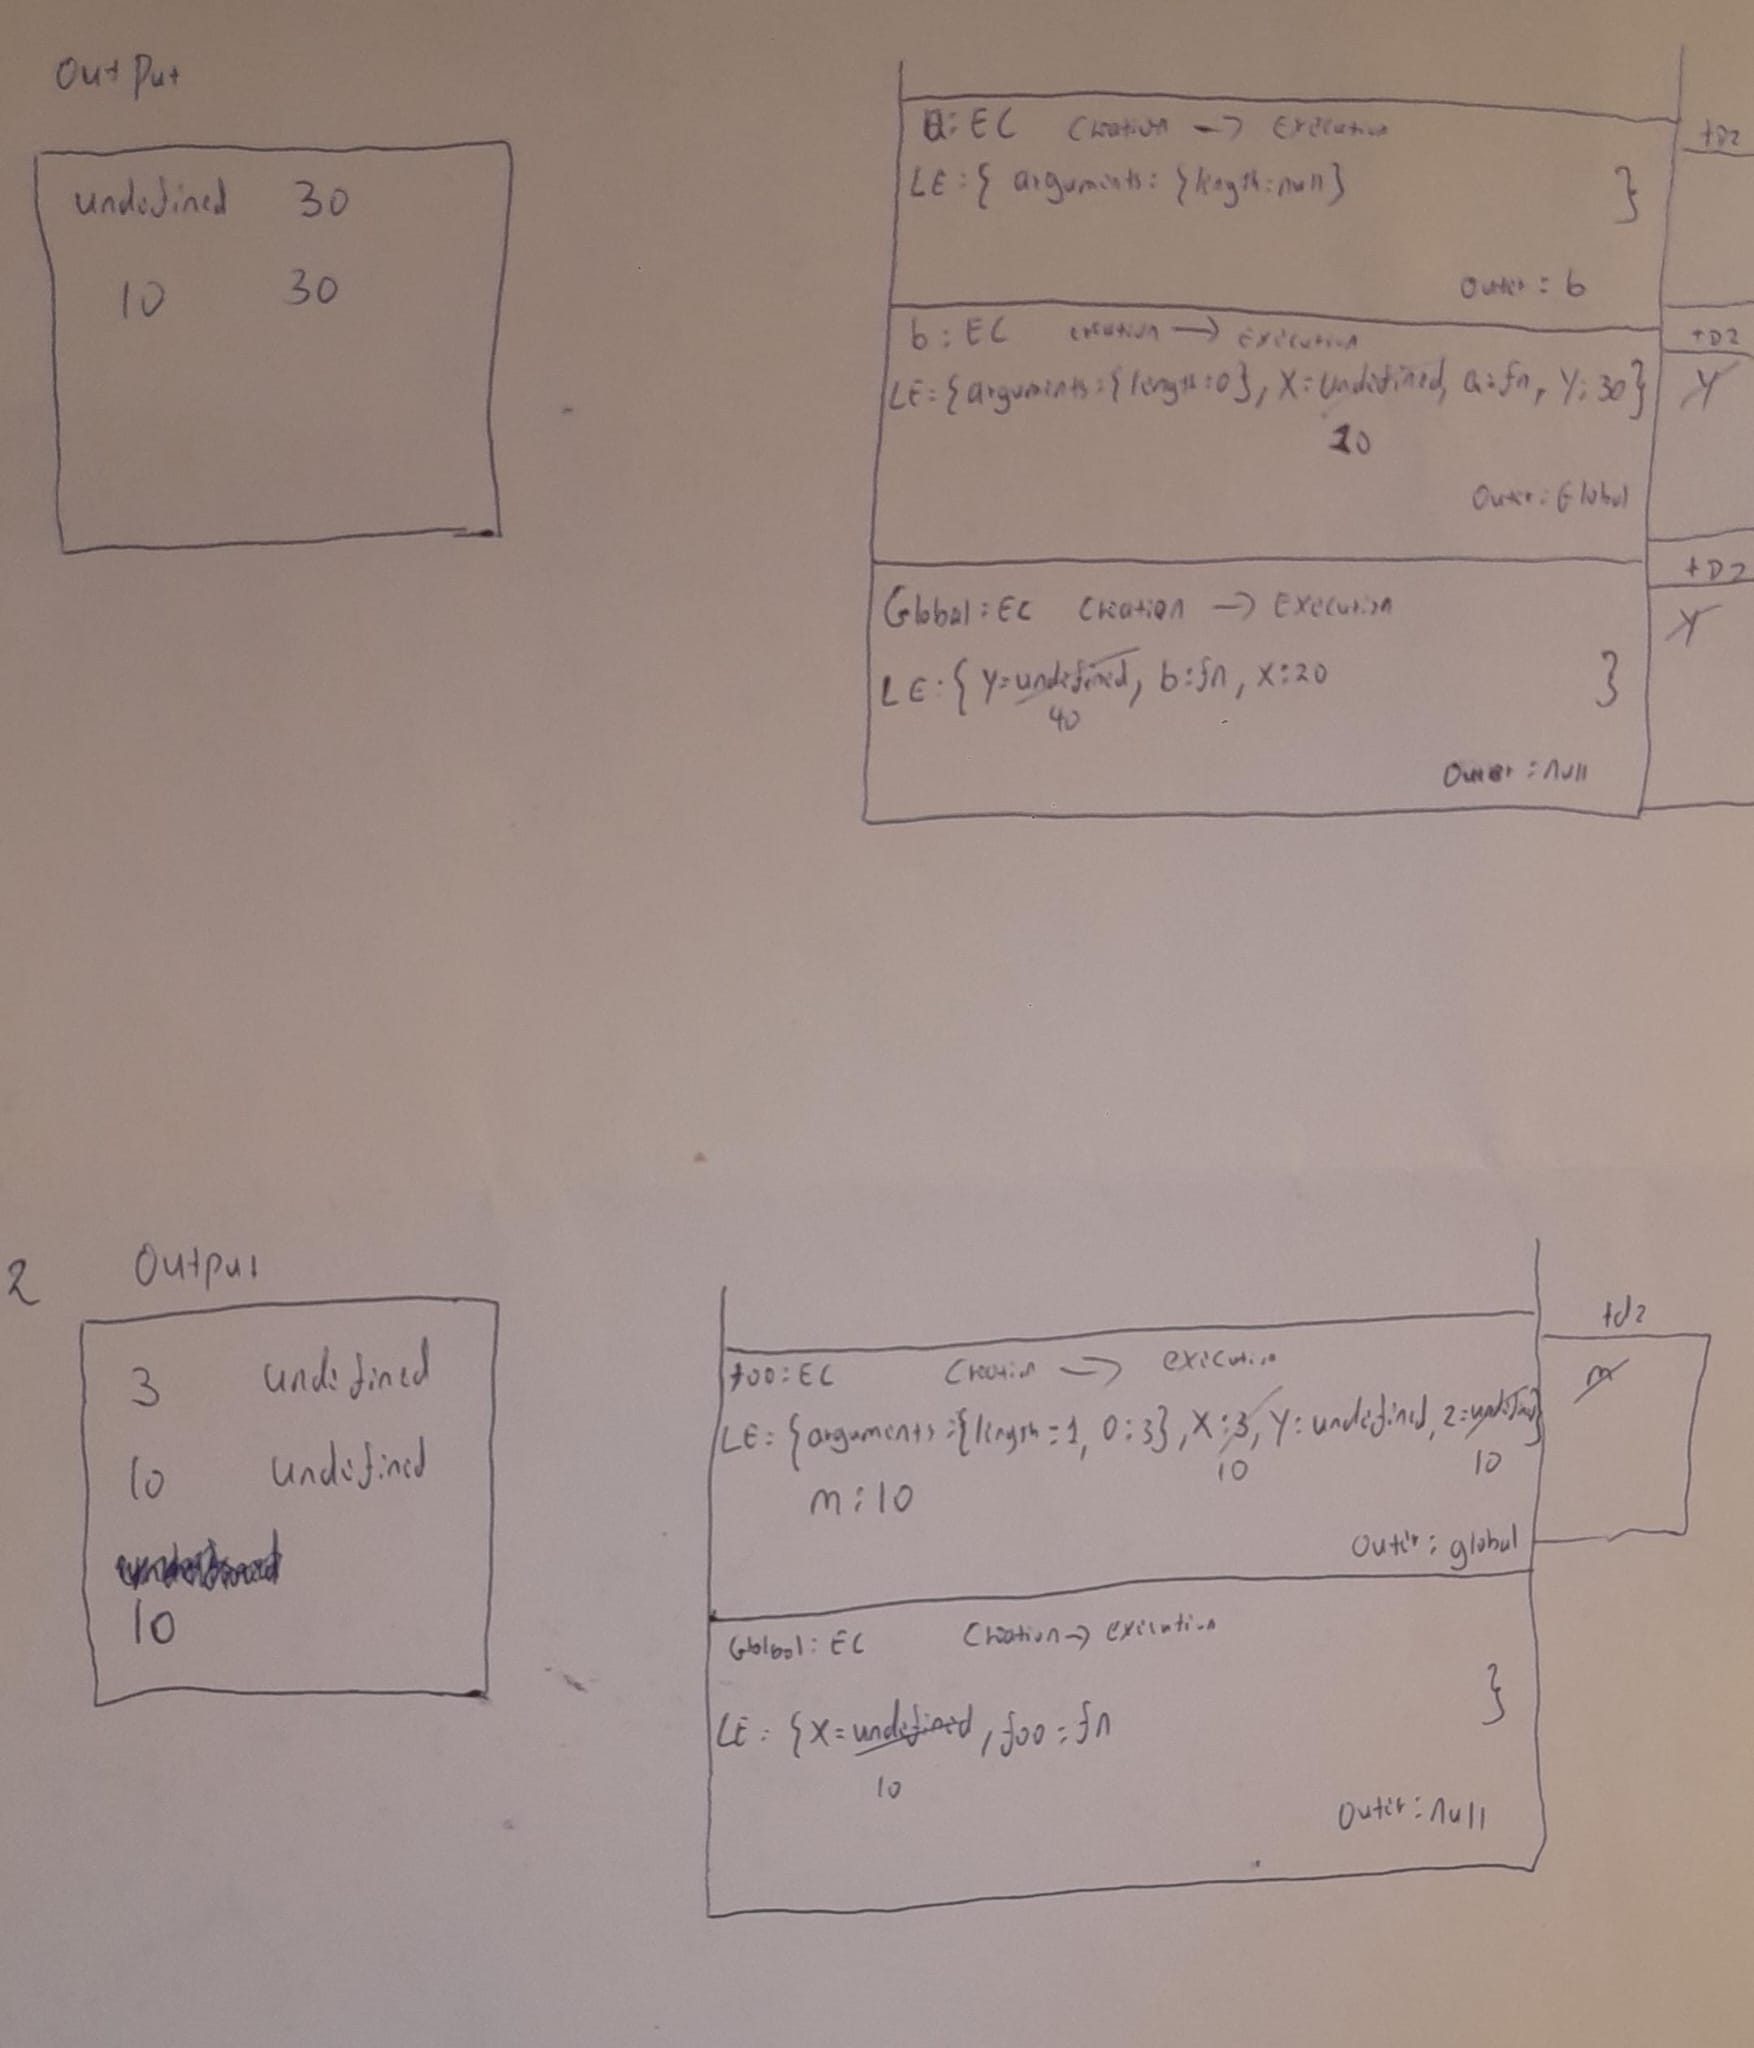 Output
undefined 30
10 30
a: EC Creation → Execution
TDZ
LE: { arguments: {length: null} }
Outer: b
b: EC creation → Execution
TDZ
LE: {arguments: {length: 0}, X: undefined, a: fn, Y: 30}
Y
10
Outer: Global
Global: EC Creation → Execution
TDZ
Y
LE: { Y= undefined, b: fn, X: 20 }
40
Outer: null
2
Output
3 undefined
10 undefined
10
tdz
foo: EC Creation → execution
m
LE: {arguments: {length = 1, 0: 3}, X: 3, Y: undefined, Z= undefined}
10 10
m: 10
Outer: global
Global: EC Creation → execution
LE: {X= undefined, foo: fn }
10
Outer: null